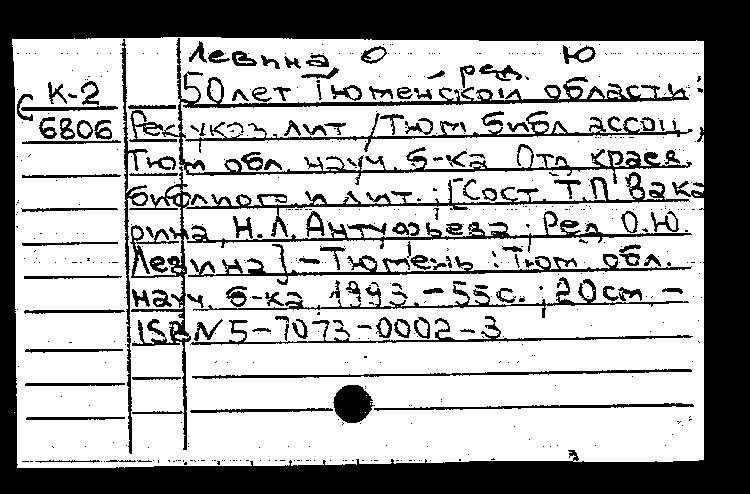 Левина, О Ю
ред.
К-2 50 лет Тюменской области:
6806 Рек. указ. лит. / Тюм. библ. ассоц.,
Тюм. обл. науч. б-ка. Отд. краев.
библиогр. и лит.; [Сост. Т.П. Вака
рина, Н.Л. Антуфьева; Ред. О.Ю.
Левина]. – Тюмень: Тюм. обл.
науч. б-ка, 1993. – 55с.; 20см –
ISBN 5-7073-0002-3